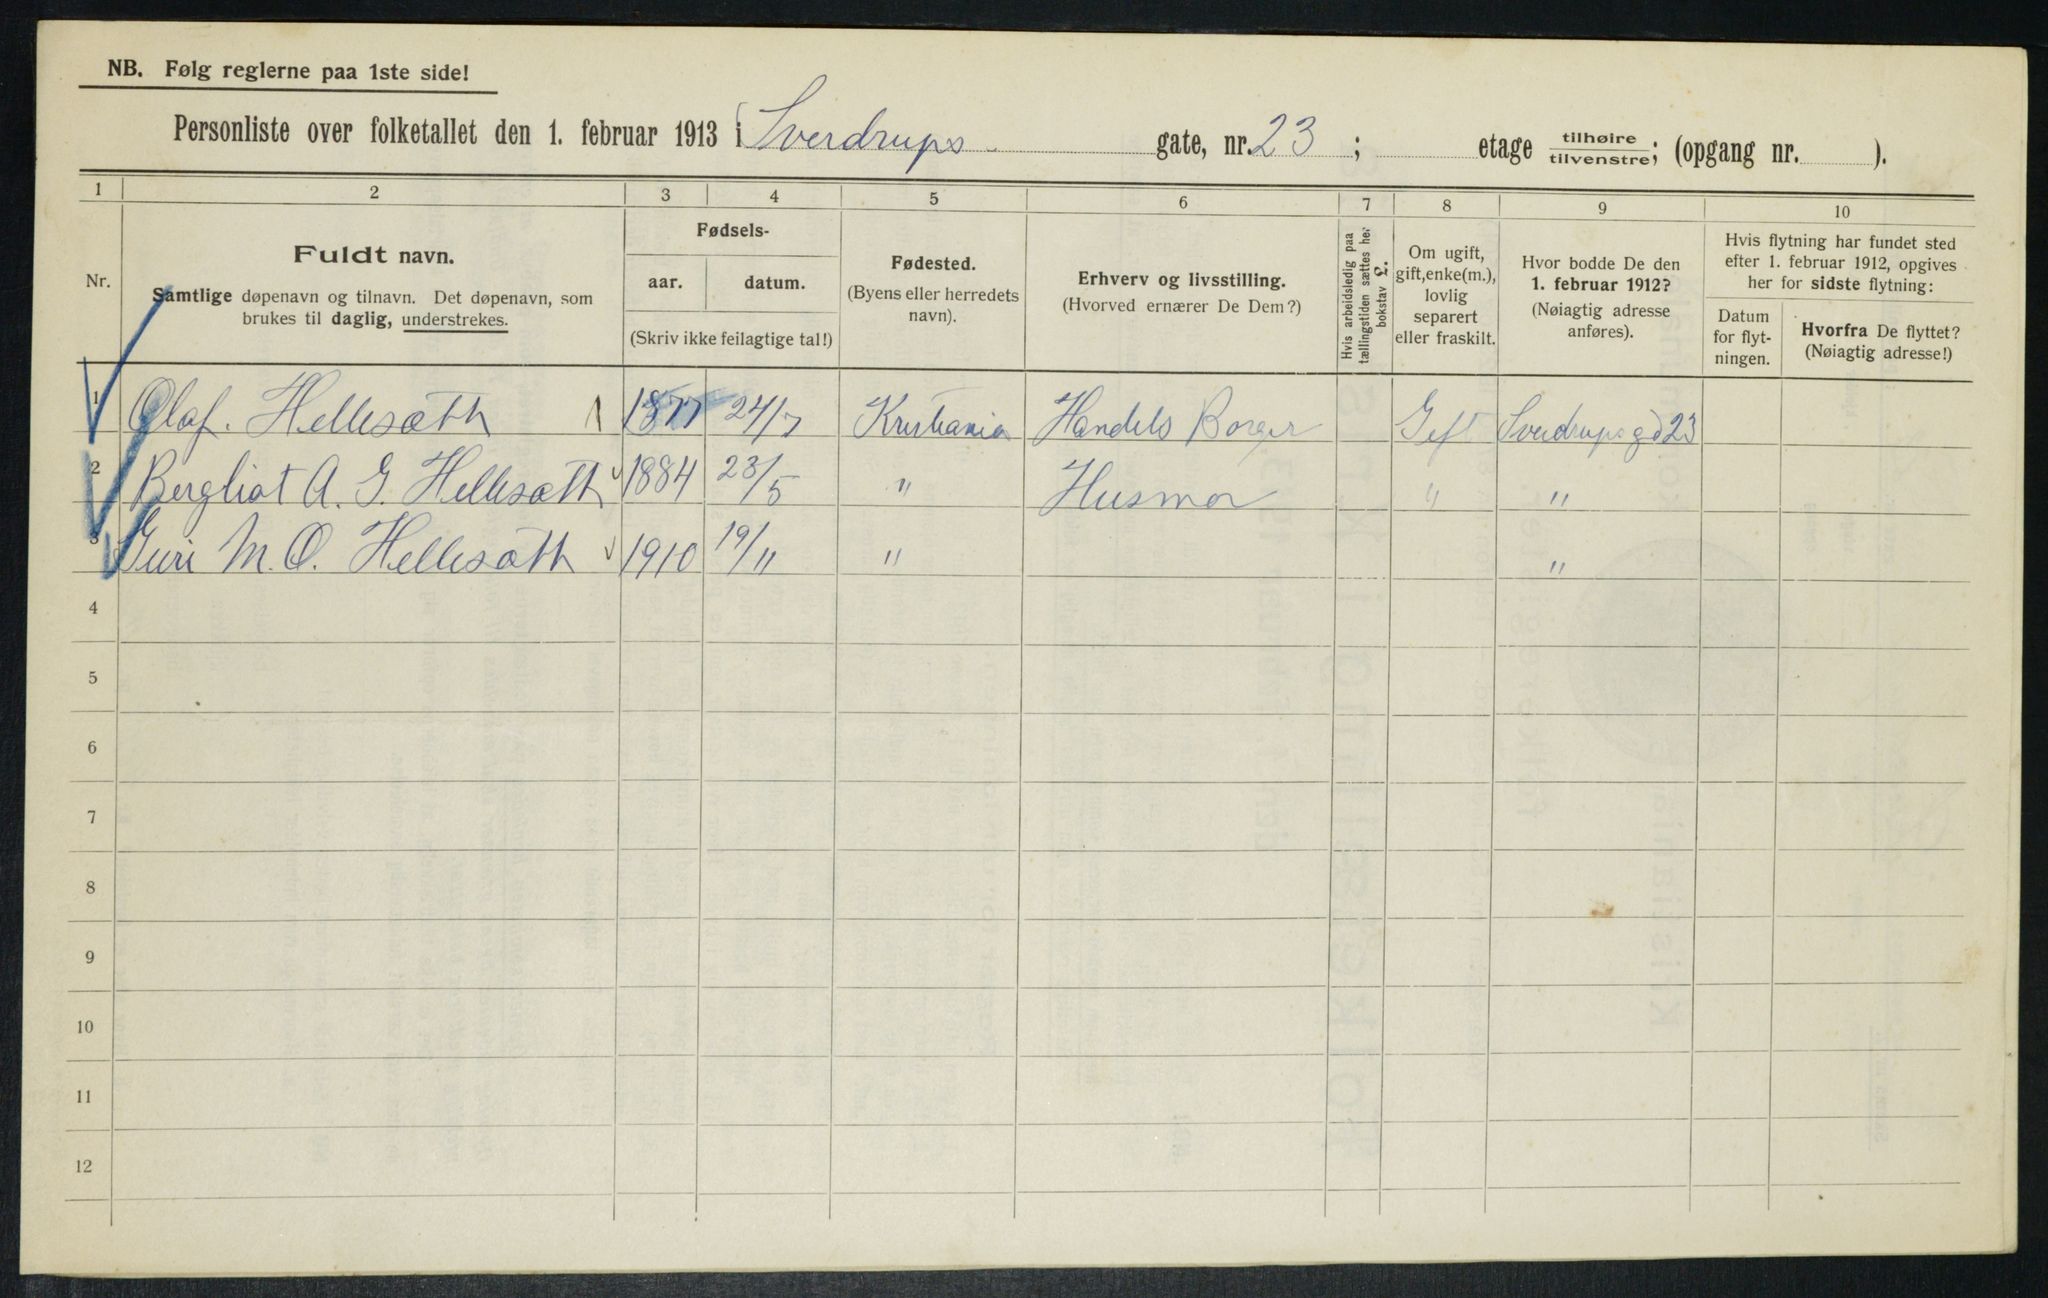 NB. Følg reglerne paa 1ste side!
Personliste over folketallet den 1. februar 1913 i Sverdrups gate, nr. 23 ; etage tilhøire tilvenstre; (opgang nr. ).
1 2 3 4 5 6 7 8 9 10
Nr.
Fuldt navn.
Samtlige døpenavn og tilnavn. Det døpenavn, som
brukes til daglig, understrekes.
Fødsels-
aar. datum.
(Skriv ikke feilagtige tal!)
Fødested.
(Byens eller herredets
navn).
Erhverv og livsstilling.
(Hvorved ernærer De Dem?)
Hvis arbeidsledig paa
tællingstiden sættes her
bokstav £.
Om ugift,
gift, enke(m.),
lovlig
separert
eller fraskilt.
Hvor bodde De den
1. februar 1912?
(Nøiagtig adresse
anføres).
Hvis flytning har fundet sted
efter 1. februar 1912, opgives
her for sidste flytning:
Datum
for flyt-
ningen.
Hvorfra De flyttet?
(Nøiagtig adresse!)
1 Olaf. Hellesæth 1877 24/7 Kristiania Handels Borger Gift Sverdrups gd 23
2 Bergliot A. G. Hellesæth 1884 23/5 " Husmor " "
3 Guri M. O. Hellesæth 1910 19/11 " "
4
5
6
7
8
9
10
11
12